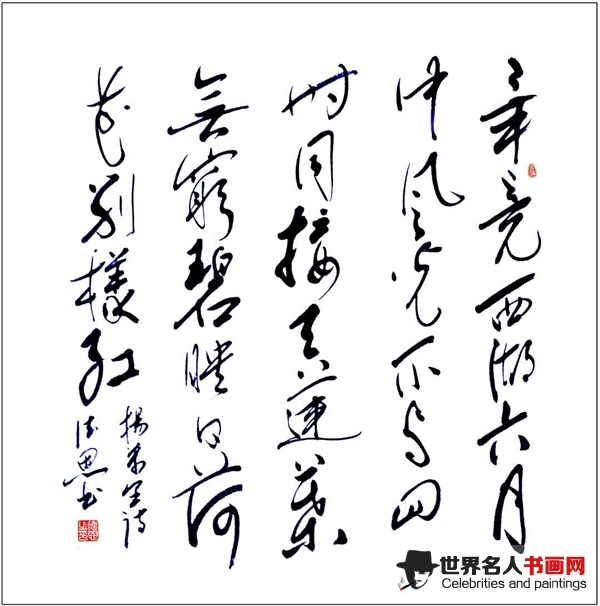 畢竟西湖六月
中風光不与四
时同接天蓮葉
無窮碧映日荷
花别樣红
楊萬里詩
世界名人书画网
Celebrities and paintings